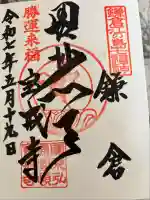 鎌倉江の島七福神
鎌倉
毘沙門天
宝戒寺
勝運来福
令和七年五月十九日